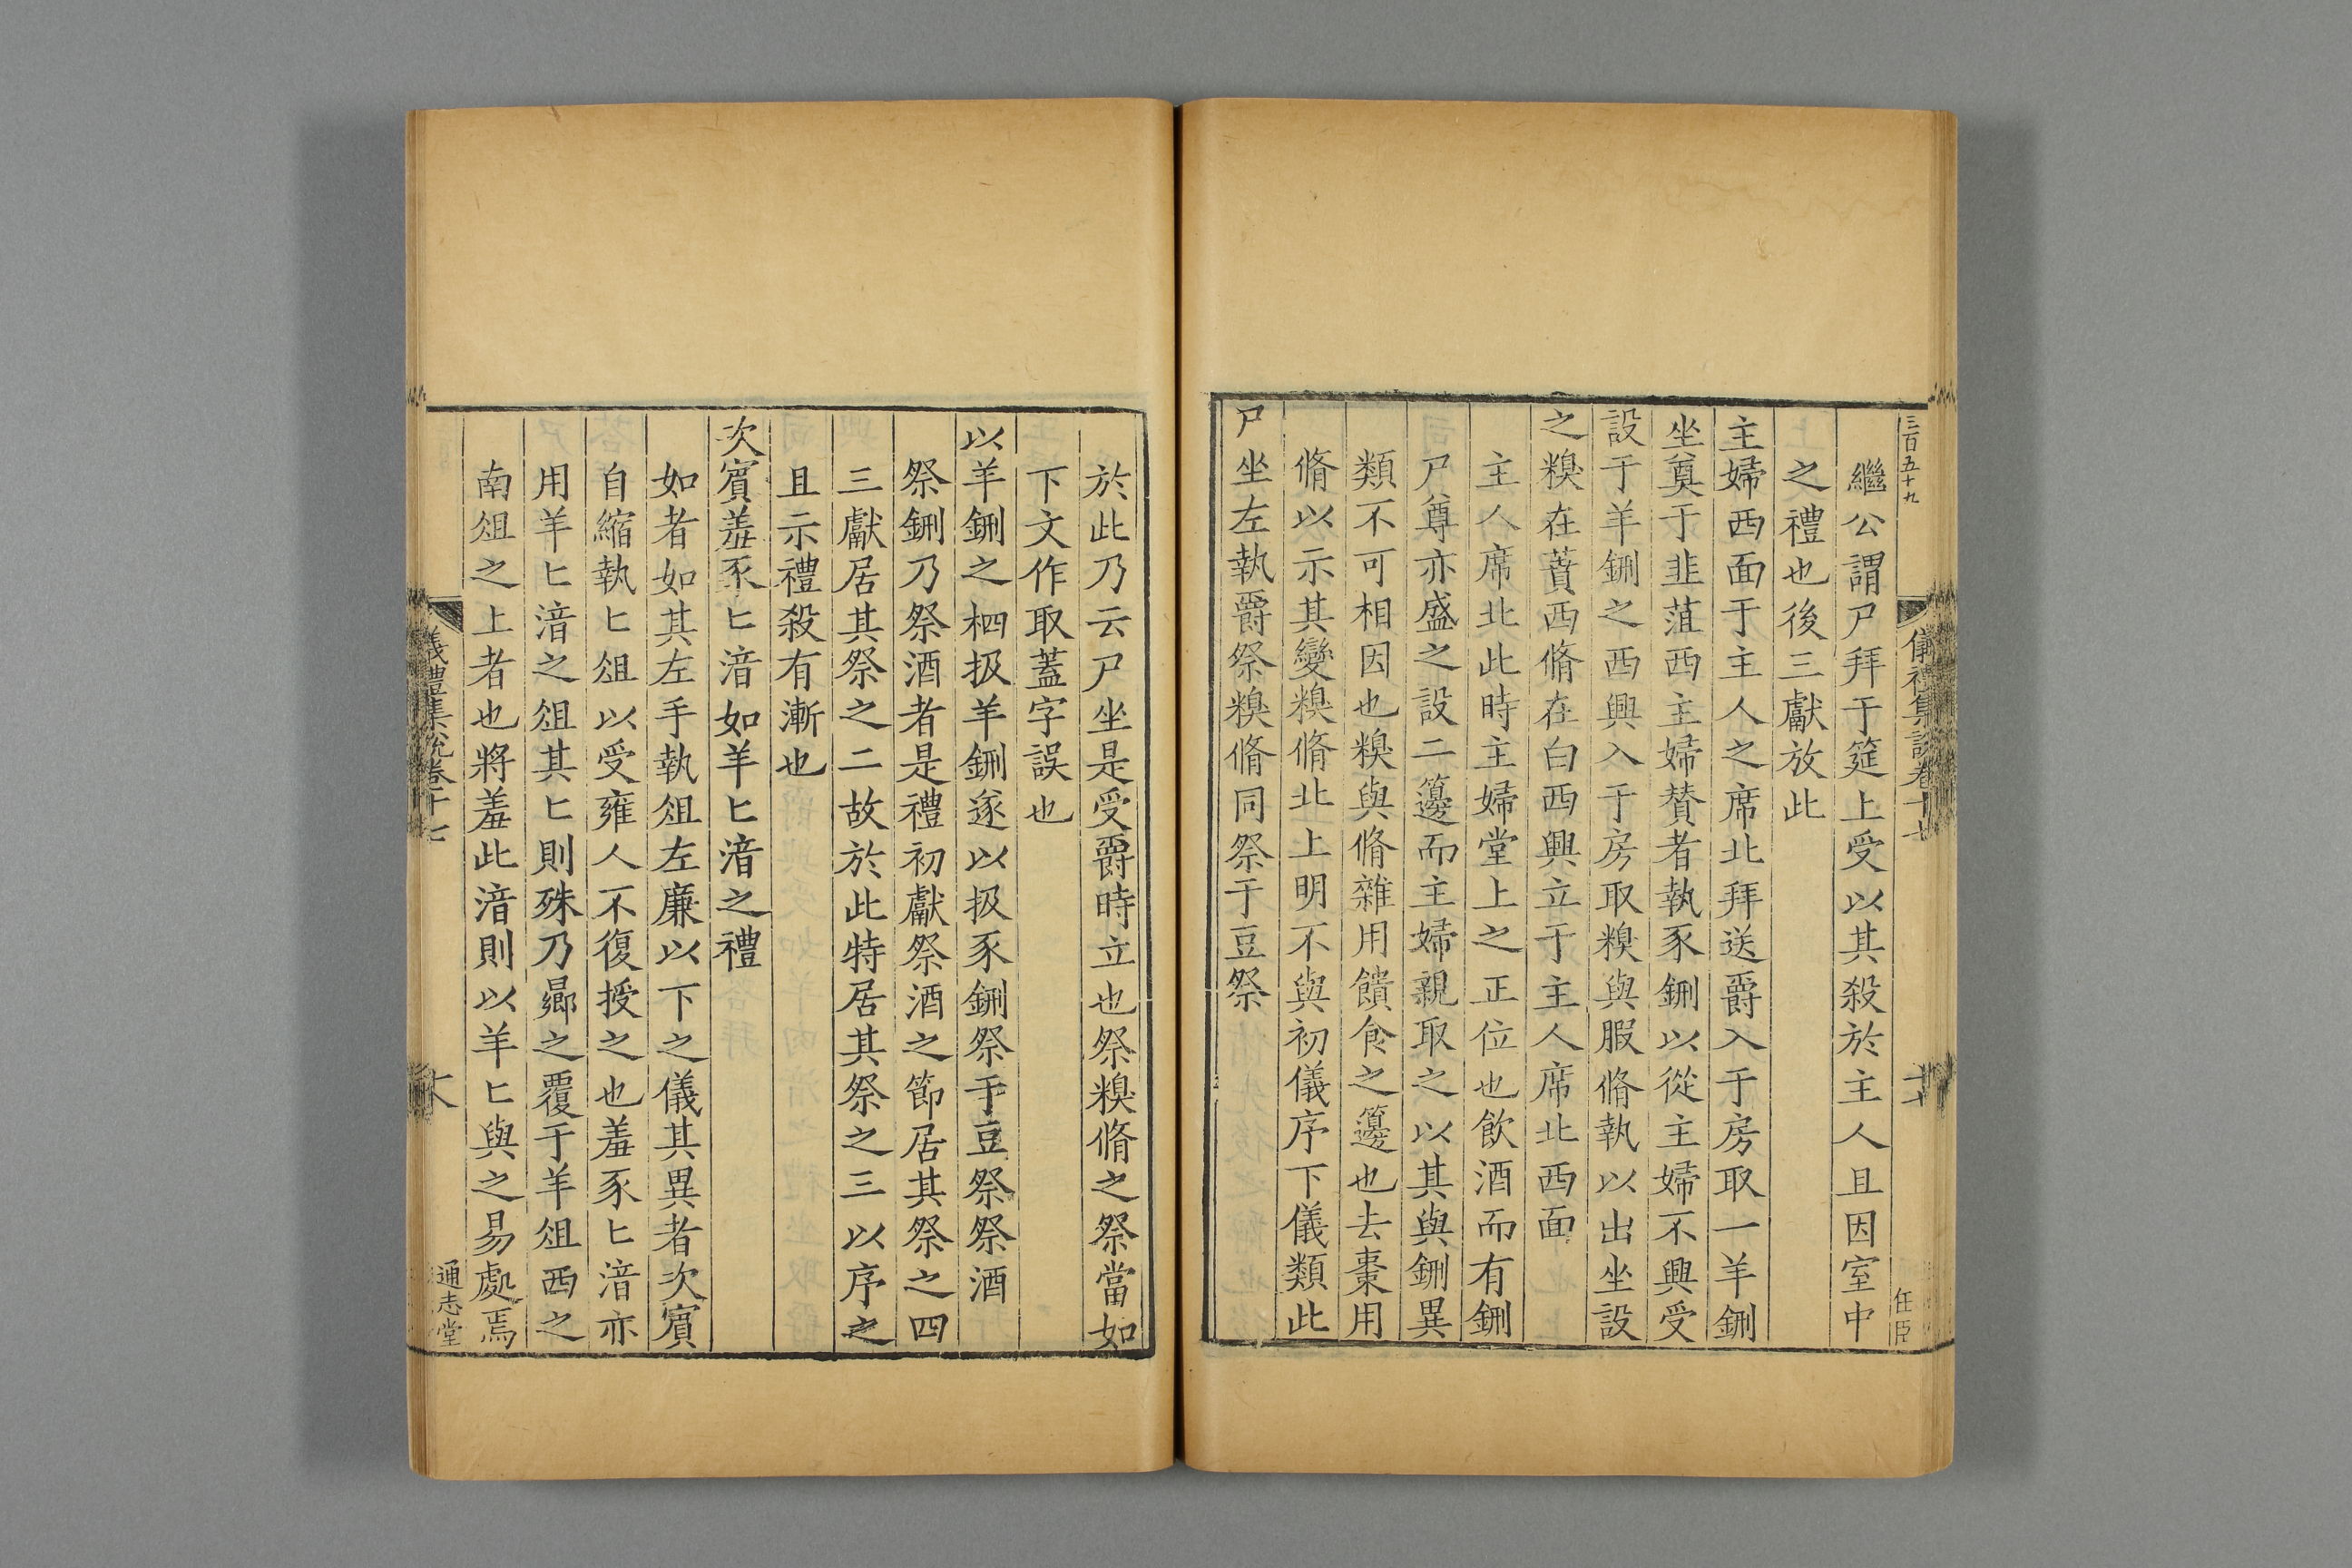 三百五十九
儀禮集說卷十七
任臣
繼公謂尸拜于筵上受以其殺於主人且因室中
之禮也後三獻放此
主婦西面于主人之席北拜送爵入于房取一羊鉶
坐奠于韭菹西主婦贊者執豕鉶以從主婦不興受
設于羊鉶之西興入于房取糗與腶脩執以出坐設
之糗在蕡西脩在白西興立于主人席北西面
主人席北此時主婦堂上之正位也飲酒而有鉶
尸尊亦盛之設二籩而主婦親取之以其與鉶異
類不可相因也糗與脩雜用饋食之籩也去棗用
脩以示其變糗脩北上明不與初儀序下儀類此
尸坐左執爵祭糗脩同祭于豆祭
於此乃云尸坐是受爵時立也祭糗脩之祭當如
下文作取蓋字誤也
以羊鉶之柶扱羊鉶遂以扱豕鉶祭于豆祭祭酒
祭鉶乃祭酒者是禮初獻祭酒之節居其祭之四
三獻居其祭之二故於此特居其祭之三以序之
且示禮殺有漸也
次賓羞豕匕湇如羊匕湇之禮
如者如其左手執俎左廉以下之儀其異者次賓
自縮執匕俎以受雍人不復授之也羞豕匕湇亦
用羊匕湇之俎其匕則殊乃曏之覆于羊俎西之
南俎之上者也將羞此湇則以羊匕與之易處焉
儀禮集說卷十七
通志堂